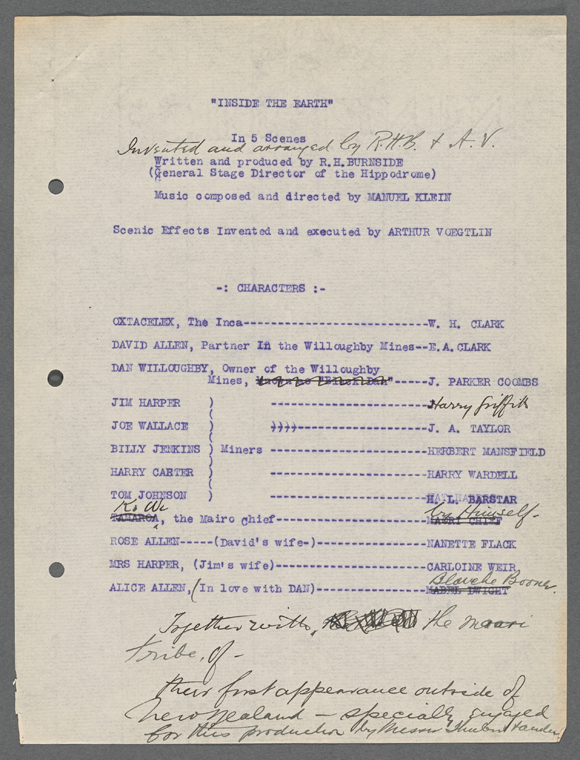 "INSIDE THE EARTH"
In 5 Scenes
Invented and arranged by R.H.B. & A.V.
Written and produced by R.H.BURNSIDE
(General Stage Director of the Hippodrome)
Music composed and directed by MANUEL KLEIN
Scenic Effects Invented and executed by ARTHUR VOEGTLIN
-: CHARACTERS :-
OXTACELEX, The Inca----------------------------W. H. CLARK
DAVID ALLEN, Partner in the Willoughby Mines--E.A.CLARK
DAN WILLOUGHBY, Owner of the Willoughby
Mines, -----J. PARKER COOMBS
JIM HARPER ) ------------------------Harry Griffith
JOE WALLACE ) ))))--------------------J. A. TAYLOR
BILLY JENKINS ) Miners ------------------------HERBERT MANSFIELD
HARRY CARTER ) ------------------------HARRY WARDELL
TOM JOHNSON ) ------------------------H. L. BARSTAR
Ka Wi by Himself-
TAMAROA, the Mairo Chief-----------------------MAORI CHIEF
ROSE ALLEN-----(David's wife-)-----------------NANETTE FLACK
MRS HARPER, (Jim's wife)-----------------------CARLOINE WEIR
Blanche Boone.
ALICE ALLEN,(In love with DAN)-----------------MABEL DWIGHT
Together with, the maori
tribe, of-
their first appearance outside of
New Zealand - specially engaged
for this production by Messrs Shubert &